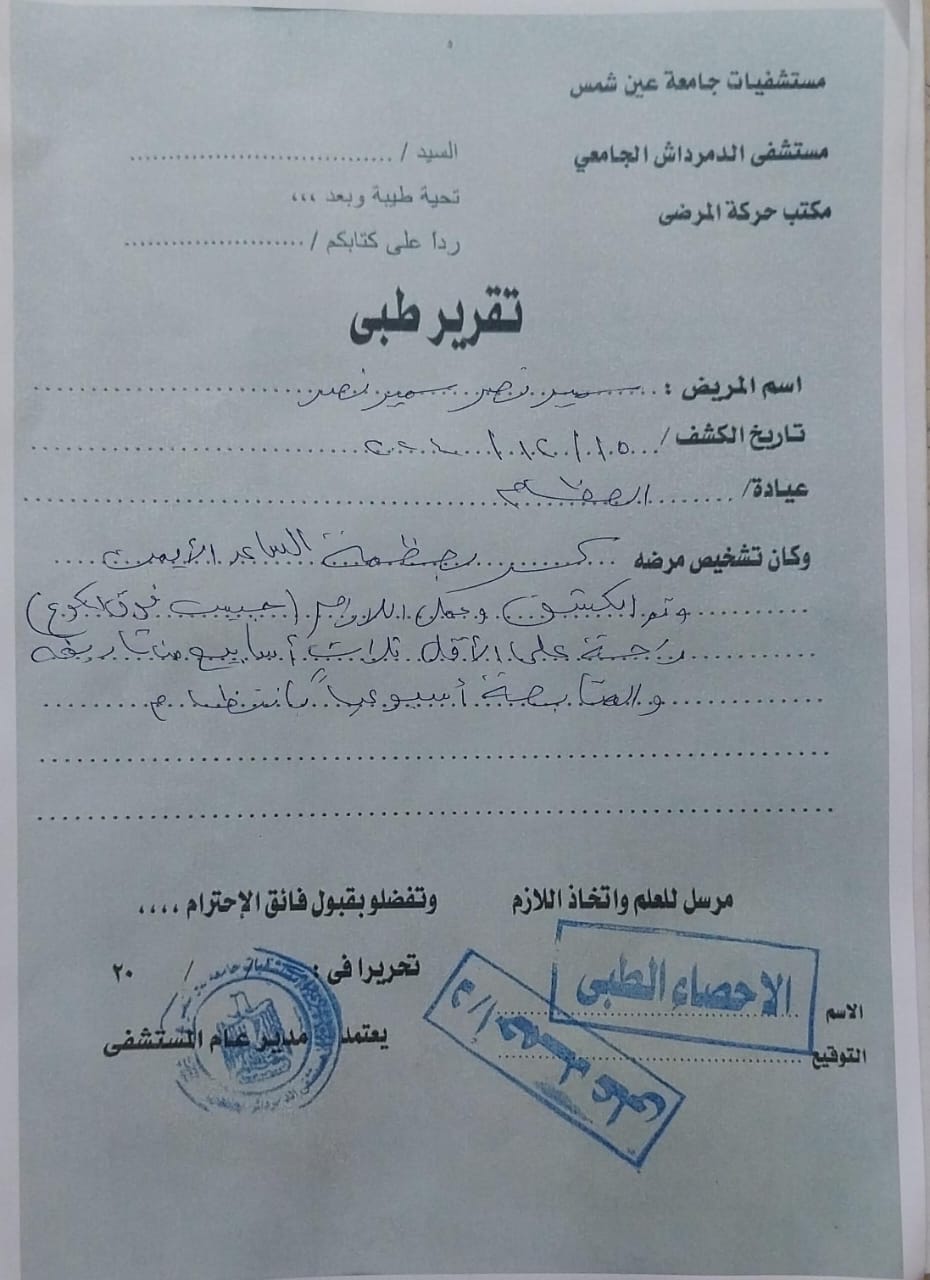 مستشفيات جامعة عين شمس
مستشفى الدمرداش الجامعي
مكتب حركة المرضى
السيد / ..................................
تحية طيبة وبعد ،،،
ردا على كتابكم / ........................
تقرير طبى
اسم المريض : سمير نصر سمير نصر
تاريخ الكشف / ١٥ / ١٢ /
عيادة/ العظام
وكان تشخيص مرضه كسر بعظمة الساعد الأيمن
وتم الكشف وعمل اللازم (جبيس فوق الكوع)
راحة على الأقل ثلاث أسابيع من تاريخه
والمتابعة أسبوعياً بانتظام
مرسل للعلم واتخاذ اللازم وتفضلو بقبول فائق الإحترام ،،،،
الاحصاء الطبى
الاسم
التوقيع
تحريرا فى : / ٢٠
يعتمد مدير عام المستشفى